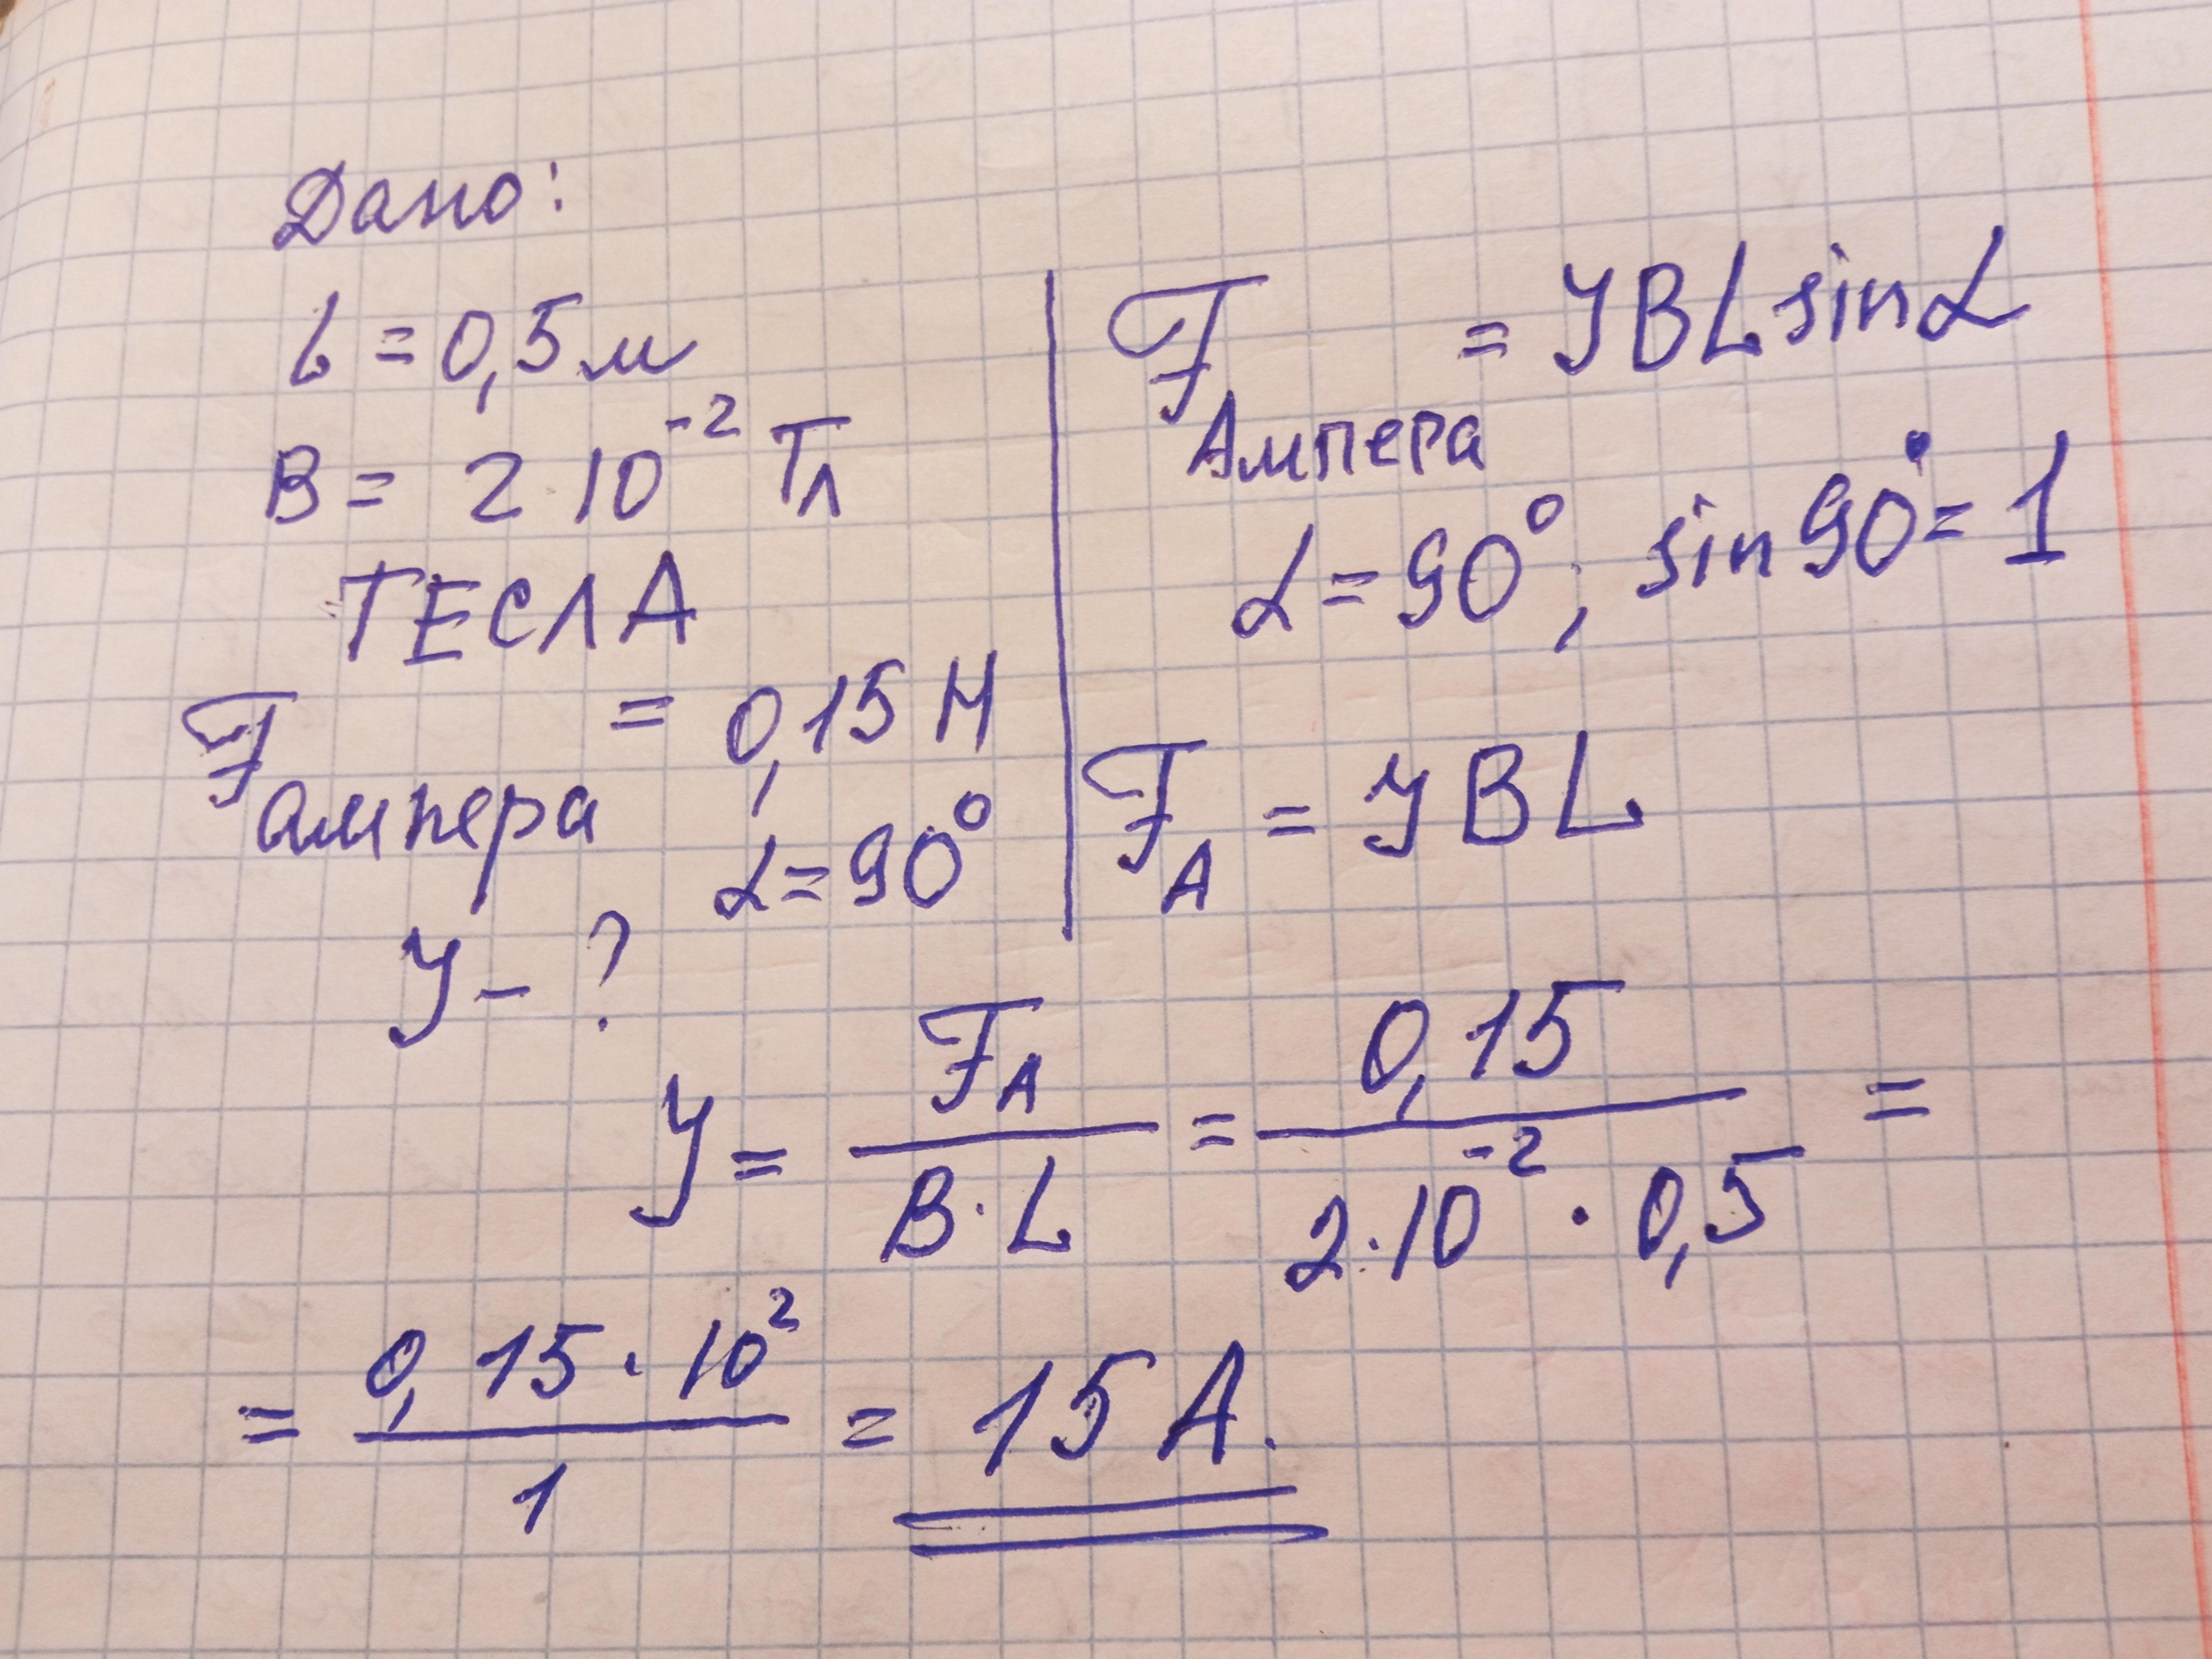 Дано:
L = 0,5 м
B = 2 10⁻² Тл
ТЕСЛА
F Ампера = 0,15 Н
α = 90°
У - ?
F Ампера = У B L sin α
α = 90°; sin 90° = 1
F_A = У B L
У = F_A / B · L = 0,15 / 2 · 10⁻² · 0,5 =
= 0,15 · 10² / 1 = 15 А.